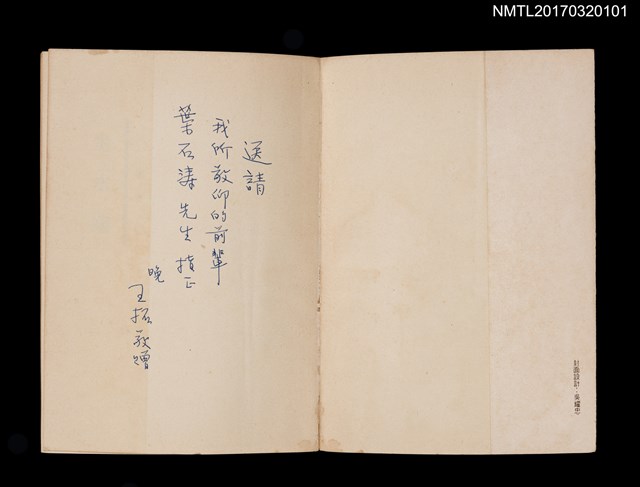 NMTL20170320101
送請
我所敬仰的前輩
葉石濤先生指正
晚
王拓敬贈
封面設計：吳耀忠